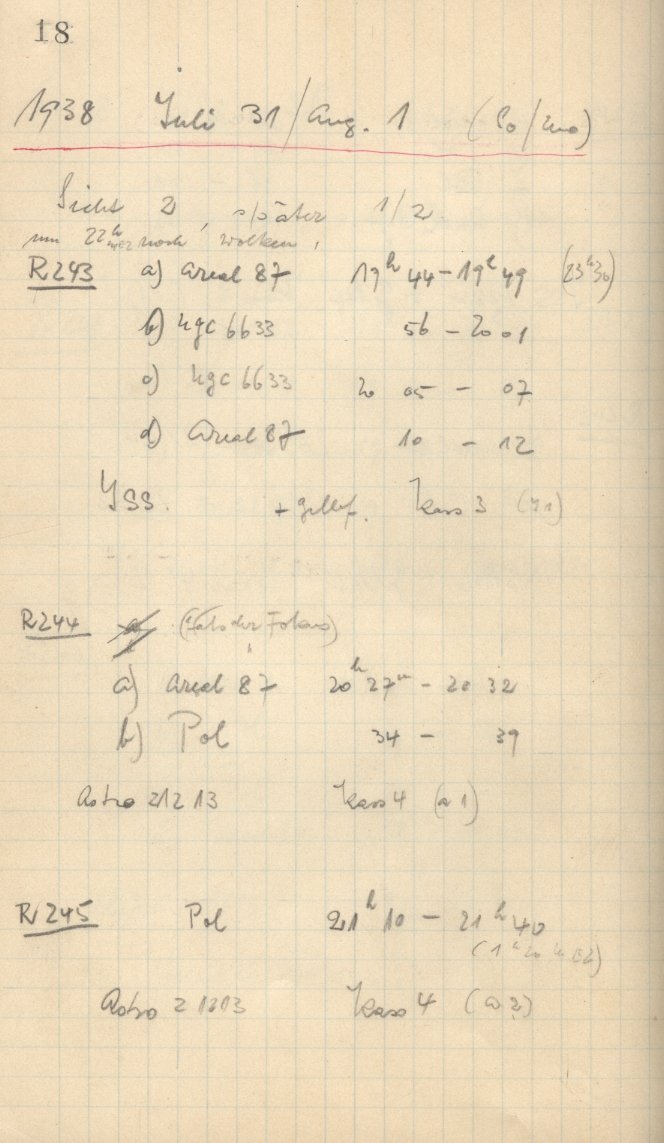 18
1938 Juli 31/Aug. 1
Sicht 2, später 1/2
um 22h noch Wolken,
R 243 a) Areal 87 19h 44 - 19h 49 (23h30)
b) Ngc 6633 56 - 20 01
c) Ngc 6633 20 05 - 07
d) Areal 87 10 - 12
ISS. + Kass 3
R 244
a) Areal 87 20h 27m - 20 32
b) Pol 34 - 39
Astro 21213 Kass 4 (a 1)
R 245 Pol 21h 10 - 21h 40
Astro 21313 Kass 4 (a 2)